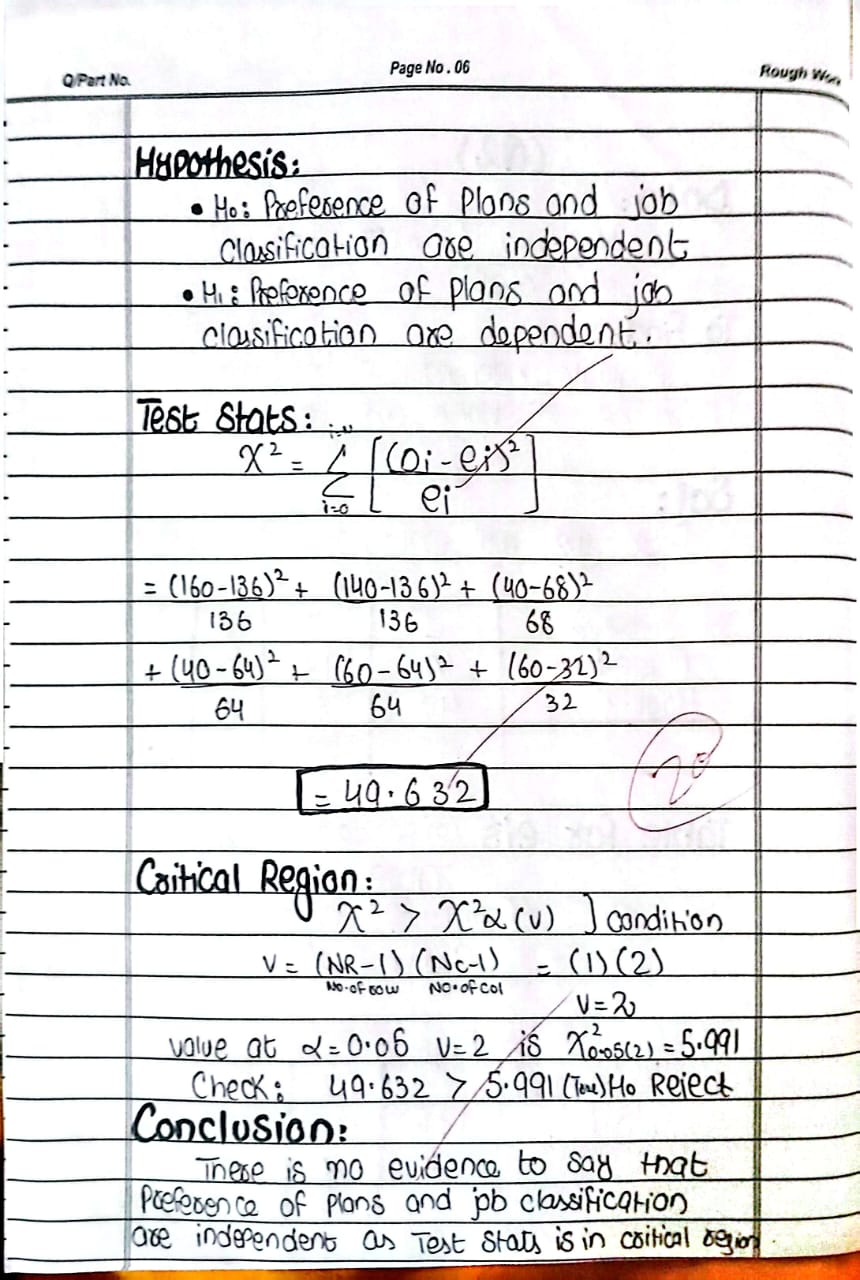 Q/Part No.
Page No. 06
Rough Wor
Hypothesis:
• H0: Preference of Plans and job
classification are independent
• H1: Preference of plans and job
classification are dependent.
Test Stats:
χ² = Σ i=0 [(oi - ei)² / ei]
= (160-136)²/136 + (140-136)²/136 + (40-68)²/68
+ (40-64)²/64 + (60-64)²/64 + (60-32)²/32
= 49.632
20
Critical Region:
χ² > χ²α(v) ] condition
v = (NR-1) (Nc-1) = (1)(2)
No.of row No.of col
v=2
value at α=0.05 v=2 is χ²0.05(2) = 5.991
Check: 49.632 > 5.991 (True) Ho Reject
Conclusion:
There is no evidence to say that
Preference of plans and job classification
are independent as Test Stats is in critical region